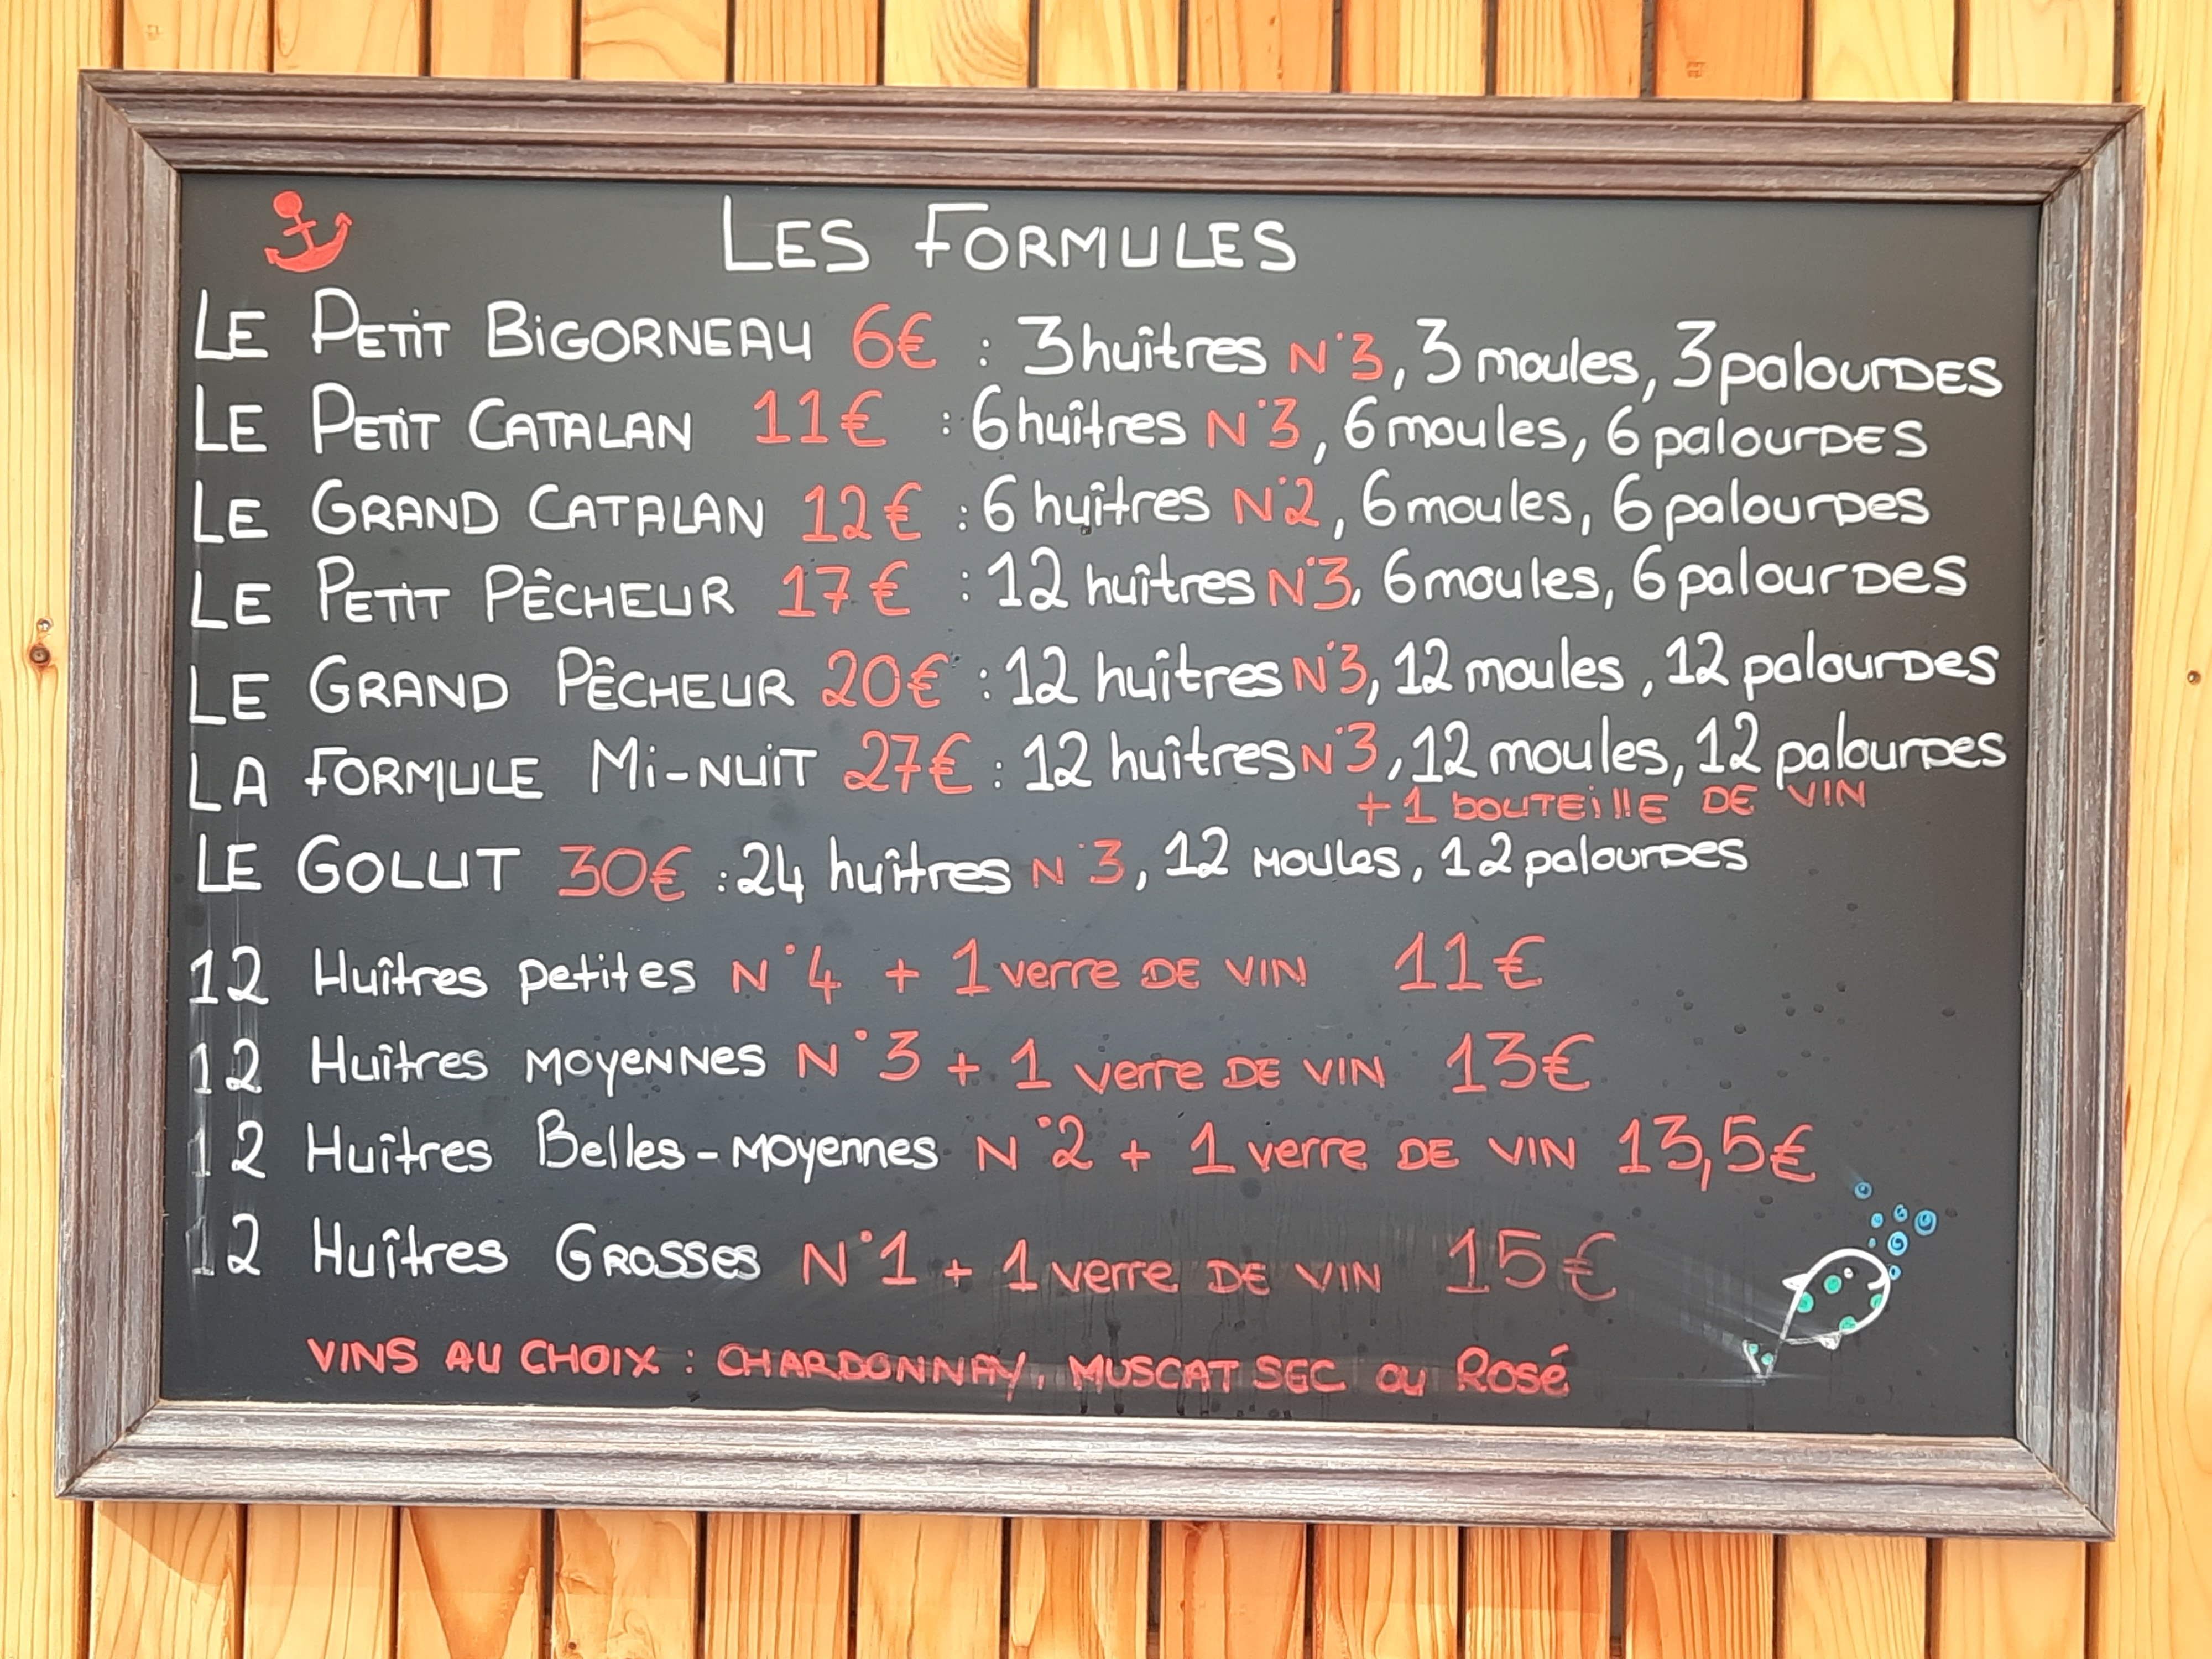 LES FORMULES
LE PETIT BIGORNEAU 6€ : 3 huîtres N°3, 3 moules, 3 palourdes
LE PETIT CATALAN 11€ : 6 huîtres N°3, 6 moules, 6 palourdes
LE GRAND CATALAN 12€ : 6 huîtres N°2, 6 moules, 6 palourdes
LE PETIT PÊCHEUR 17€ : 12 huîtres N°3, 6 moules, 6 palourdes
LE GRAND PÊCHEUR 20€ : 12 huîtres N°3, 12 moules, 12 palourdes
LA FORMULE Mi-NUIT 27€ : 12 huîtres N°3, 12 moules, 12 palourdes
+ 1 bouteille DE VIN
LE GOLLUT 30€ : 24 huîtres N°3, 12 Moules, 12 palourdes
12 Huîtres petites N°4 + 1 verre DE VIN 11€
12 Huîtres MOYENNES N°3 + 1 verre DE VIN 13€
12 Huîtres Belles-Moyennes N°2 + 1 verre DE VIN 13,5€
12 Huîtres Grosses N°1 + 1 verre DE VIN 15€
VINS AU CHOIX : CHARDONNAY, MUSCAT SEC ou Rosé